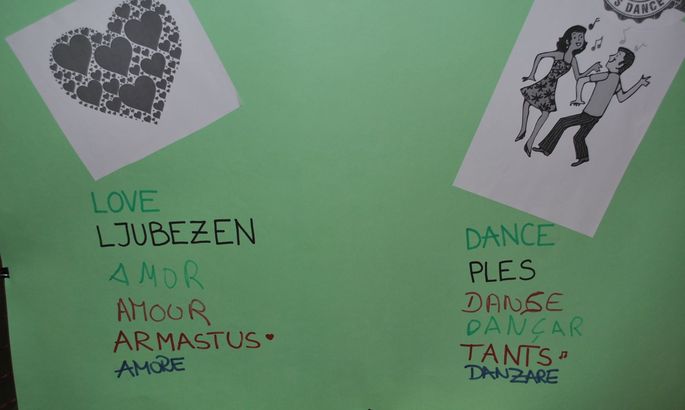 S DANCE
LOVE
LJUBEZEN
AMOR
AMOUR
ARMASTUS
AMORE
DANCE
PLES
DANSE
DANÇAR
TANTS
DANZARE